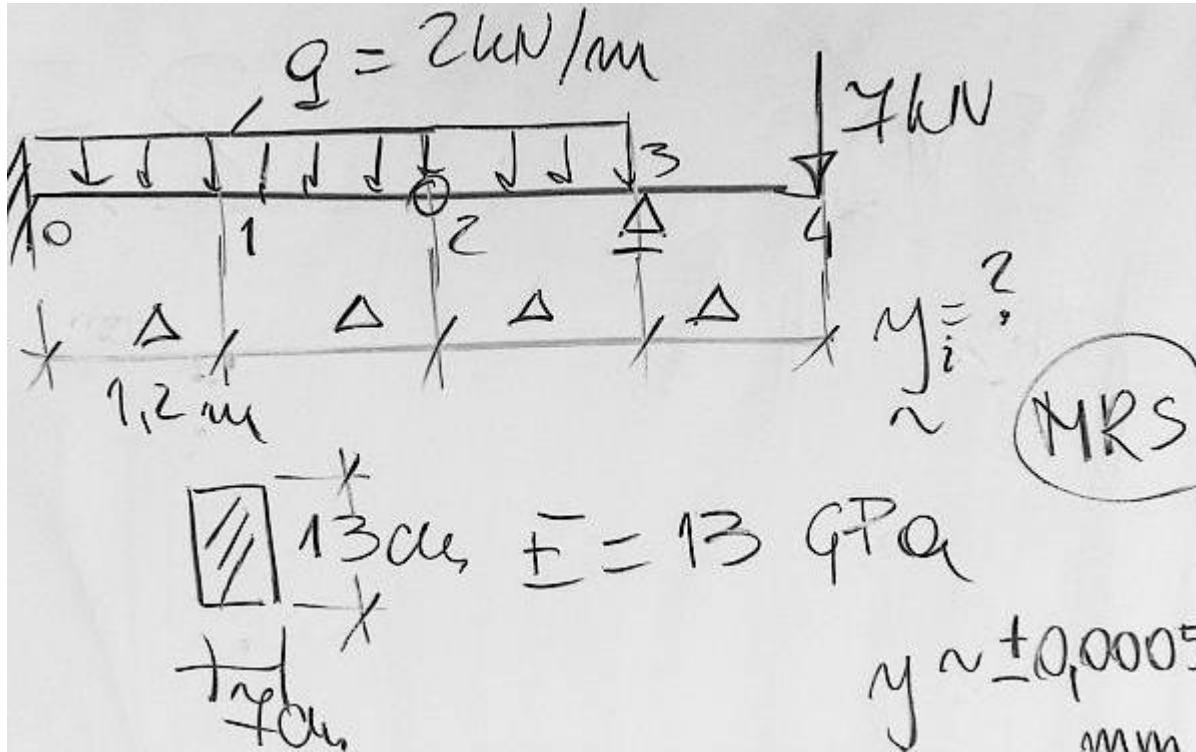 q = 2kN/m
7kN
0 1 2 3 4
Δ Δ Δ Δ
1,2 m
y_i = ?
~
MRS
13cm E = 13 GPa
7cm
y ~ ±0,0005
mm